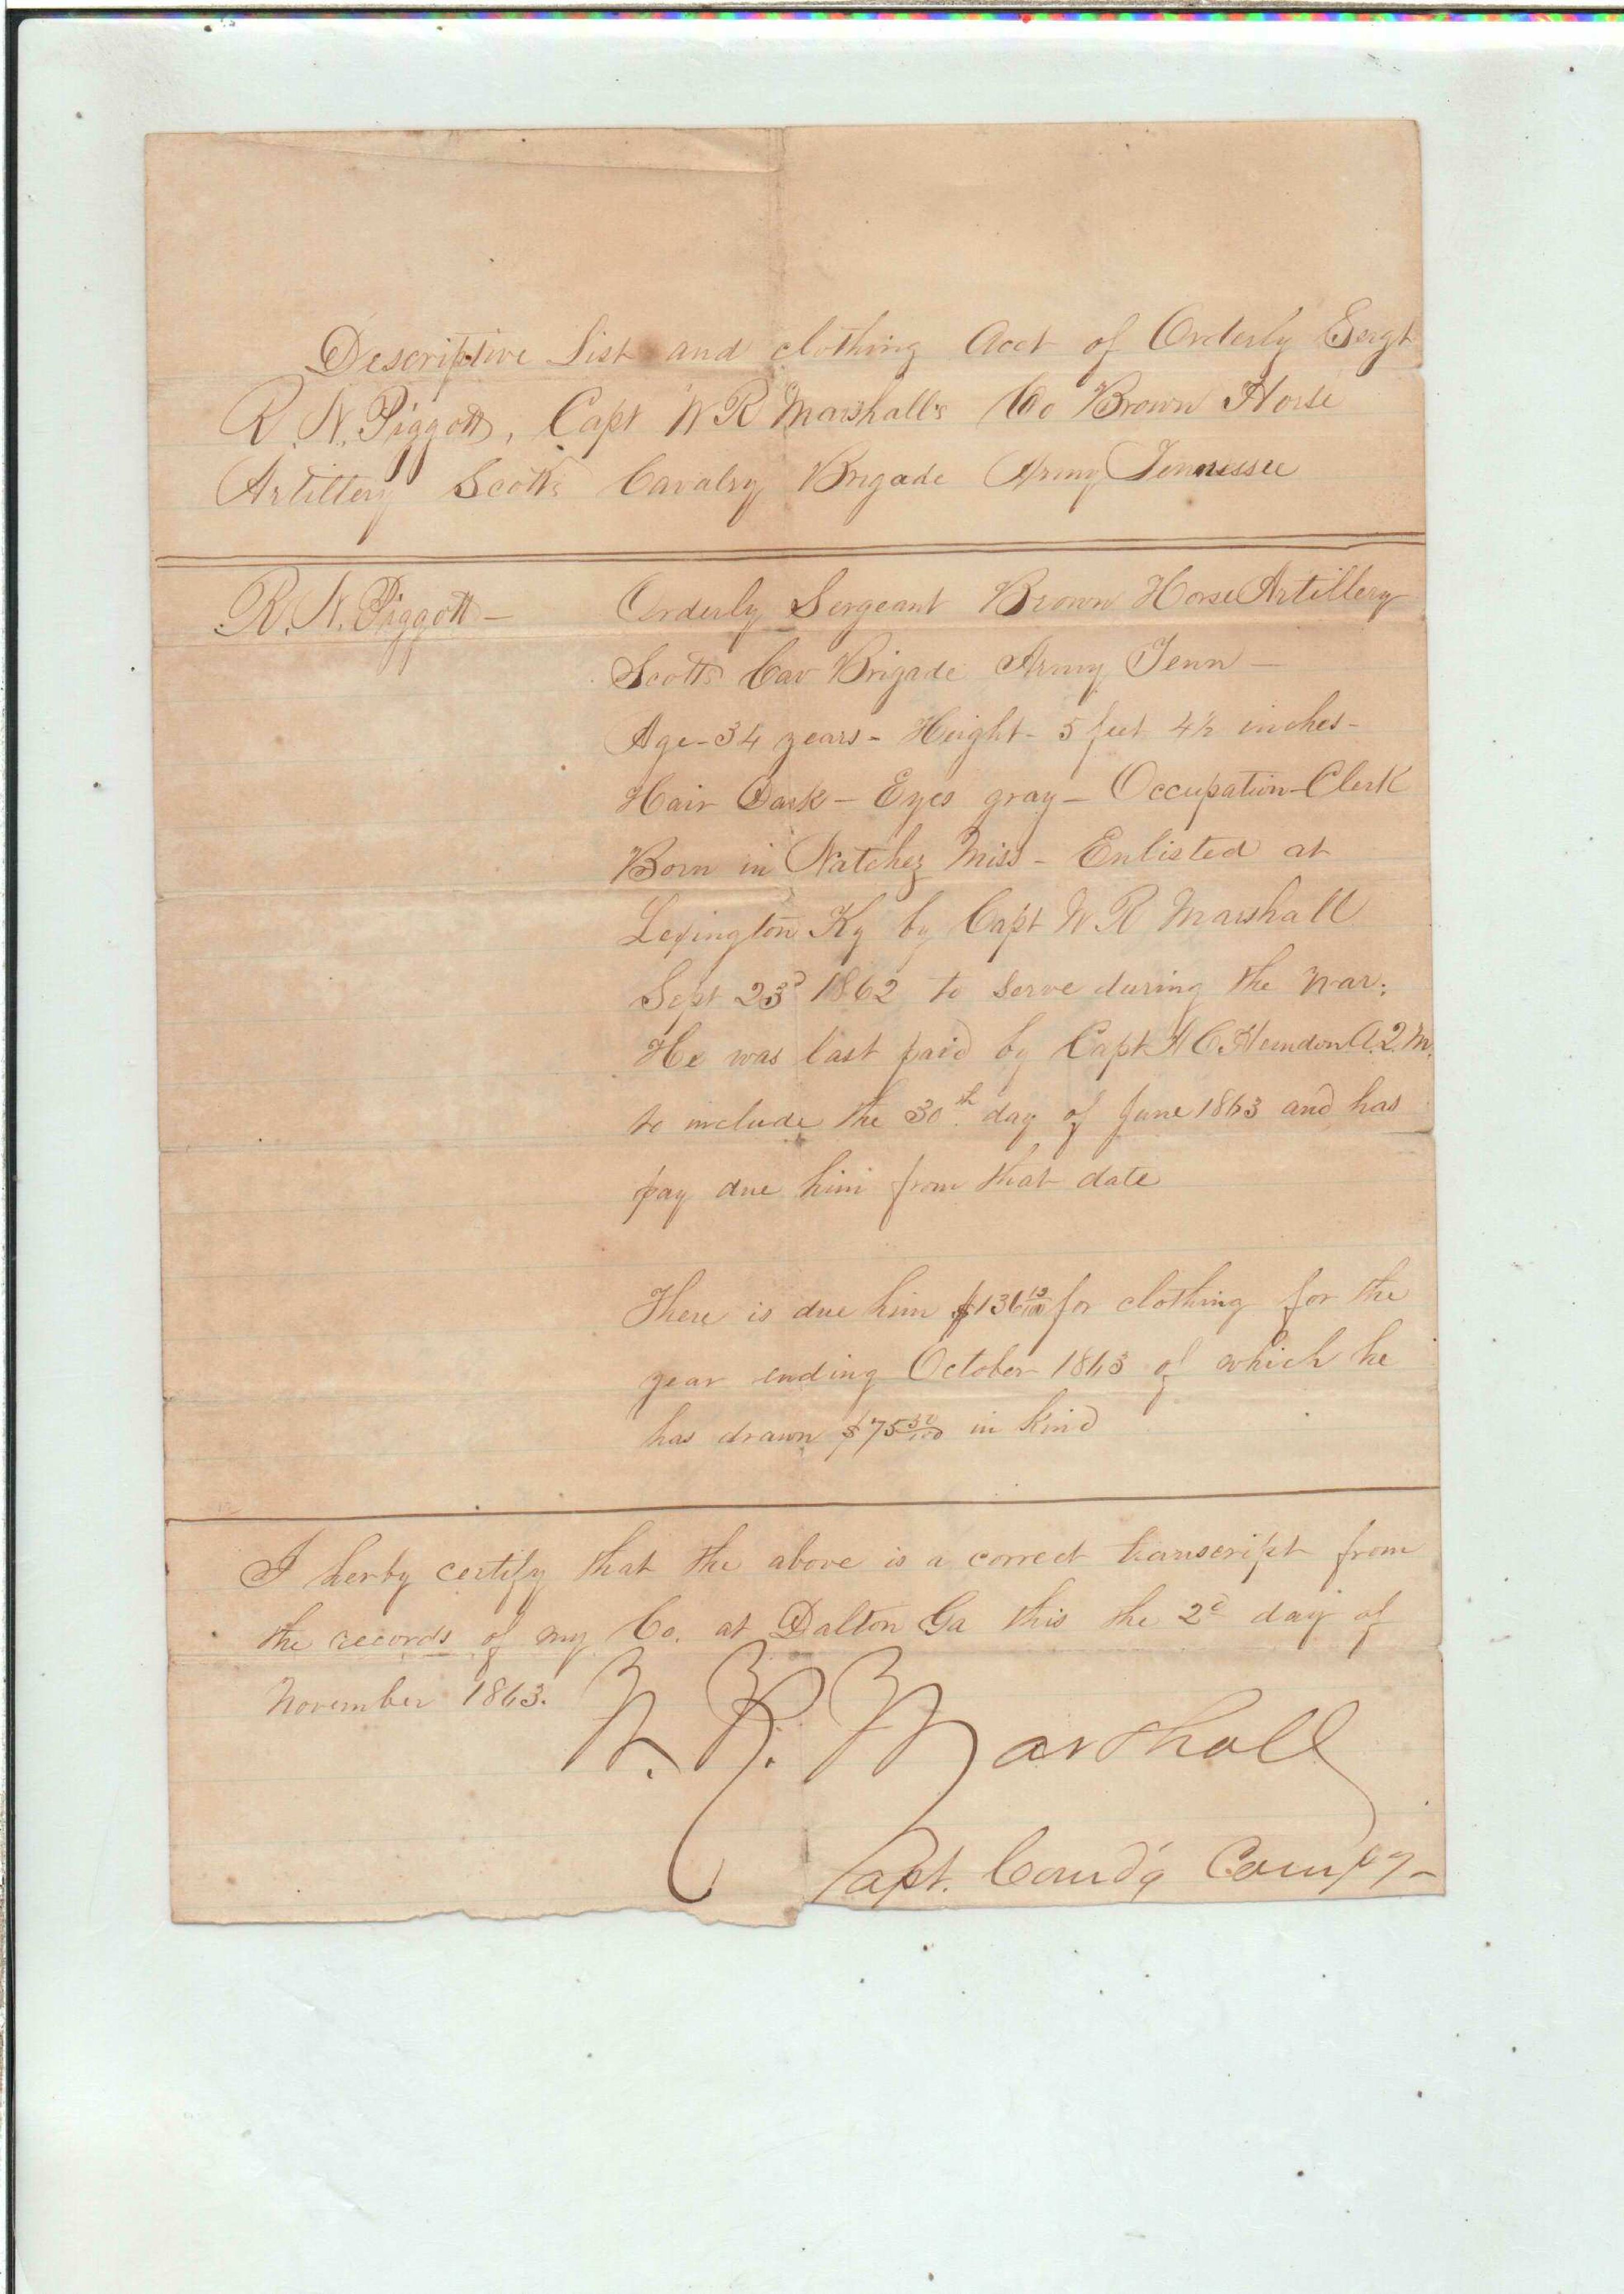 Descriptive List and clothing Acct of Orderly Sergt
R. N. Piggott, Capt W R Marshall's Co Brown Horse
Artillery Scott's Cavalry Brigade Army Tennessee
R. N. Piggott — Orderly Sergeant Brown Horse Artillery
Scott's Cav Brigade Army Tenn —
Age - 34 years - Height - 5 feet 4½ inches -
Hair Dark - Eyes gray - Occupation - Clerk
Born in Natchez Miss - Enlisted at
Lexington Ky by Capt W R Marshall
Sept 23d 1862 to serve during the war.
He was last paid by Capt H C Herndon A.Q.M.
to include the 30th day of June 1863 and has
pay due him from that date
There is due him $136 for clothing for the
year ending October 1863 of which he
has drawn $75 50/100 in kind
I herby certify that the above is a correct transcript from
the records of my Co. at Dalton Ga this the 2d day of
November 1863.
W. R. Marshall
Capt. Comd'g Comp'y -